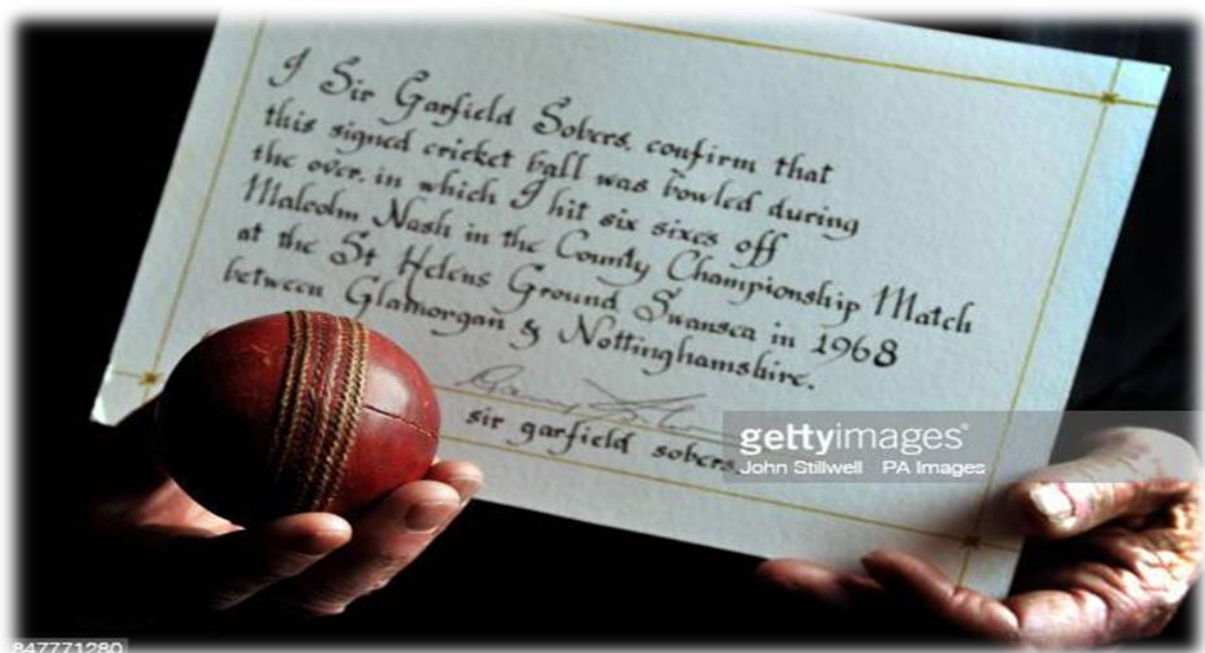 I Sir Garfield Sobers, confirm that
this signed cricket ball was bowled during
the over, in which I hit six sixes off
Malcolm Nash in the County Championship Match
at the St Helens Ground Swansea in 1968
between Glamorgan & Nottinghamshire.
sir garfield sobers
gettyimages®
John Stillwell PA Images
847771280